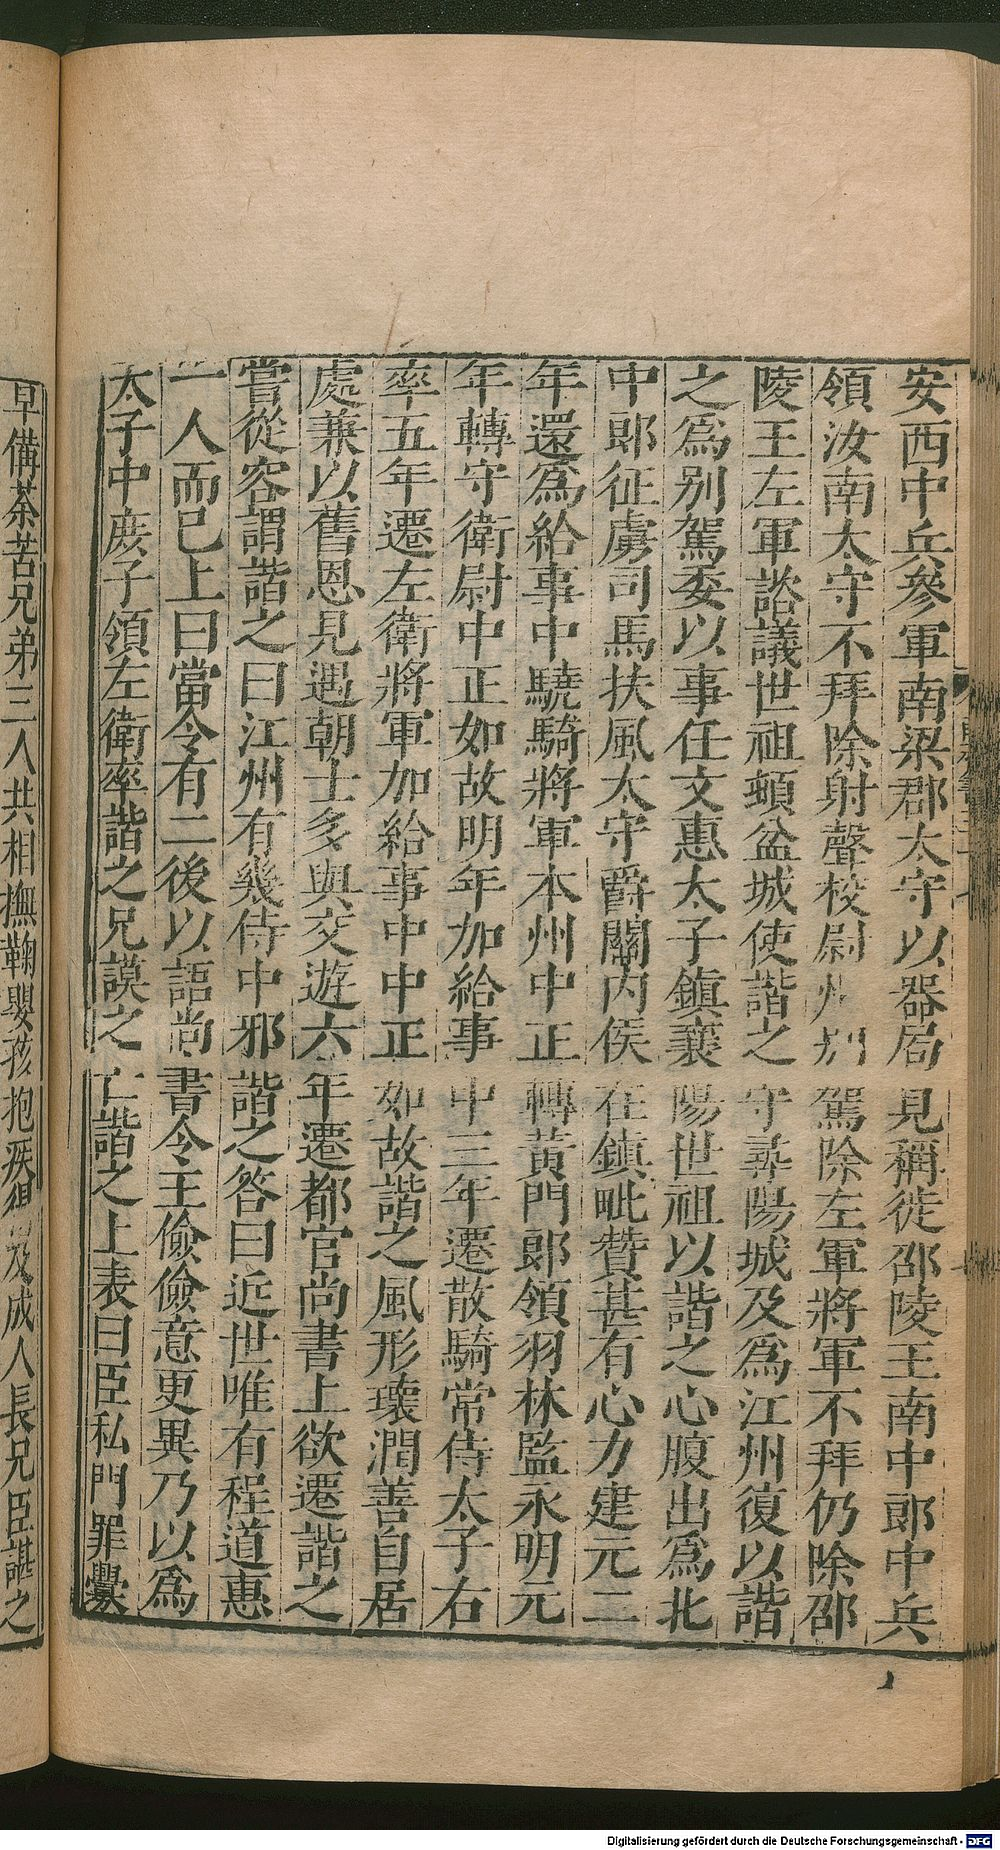 安西中兵參軍南梁郡太守以器局見稱徙邵陵王南中郎中兵
領汝南太守不拜除射聲校尉州別駕除左軍將軍不拜仍除邵
陵王左軍諮議世祖頓盆城使諧之守尋陽城及爲江州復以諧
之爲别駕委以事任文惠太子鎮襄陽世祖以諧之心腹出爲北
中郎征虜司馬扶風太守爵關內侯在鎮毗贊甚有心力建元二
年還爲給事中驍騎將軍本州中正轉黃門郎領羽林監永明元
年轉守衛尉中正如故明年加給事中三年遷散騎常侍太子右
率五年遷左衛將軍加給事中中正如故諧之風形瓌潤善自居
處兼以舊恩見遇朝士多與交遊六年遷都官尚書上欲遷諧之
嘗從容謂諧之曰江州有幾侍中邪諧之答曰近世唯有程道惠
一人而已上曰當令有二後以語尚書令王儉儉意更異乃以爲
太子中庶子領左衛率諧之兄謨之亡諧之上表曰臣私門罪釁
早備荼苦兄弟三人共相撫鞠嬰孩抱疾得及成人長兄臣諶之
Digitalisierung gefördert durch die Deutsche Forschungsgemeinschaft - DFG